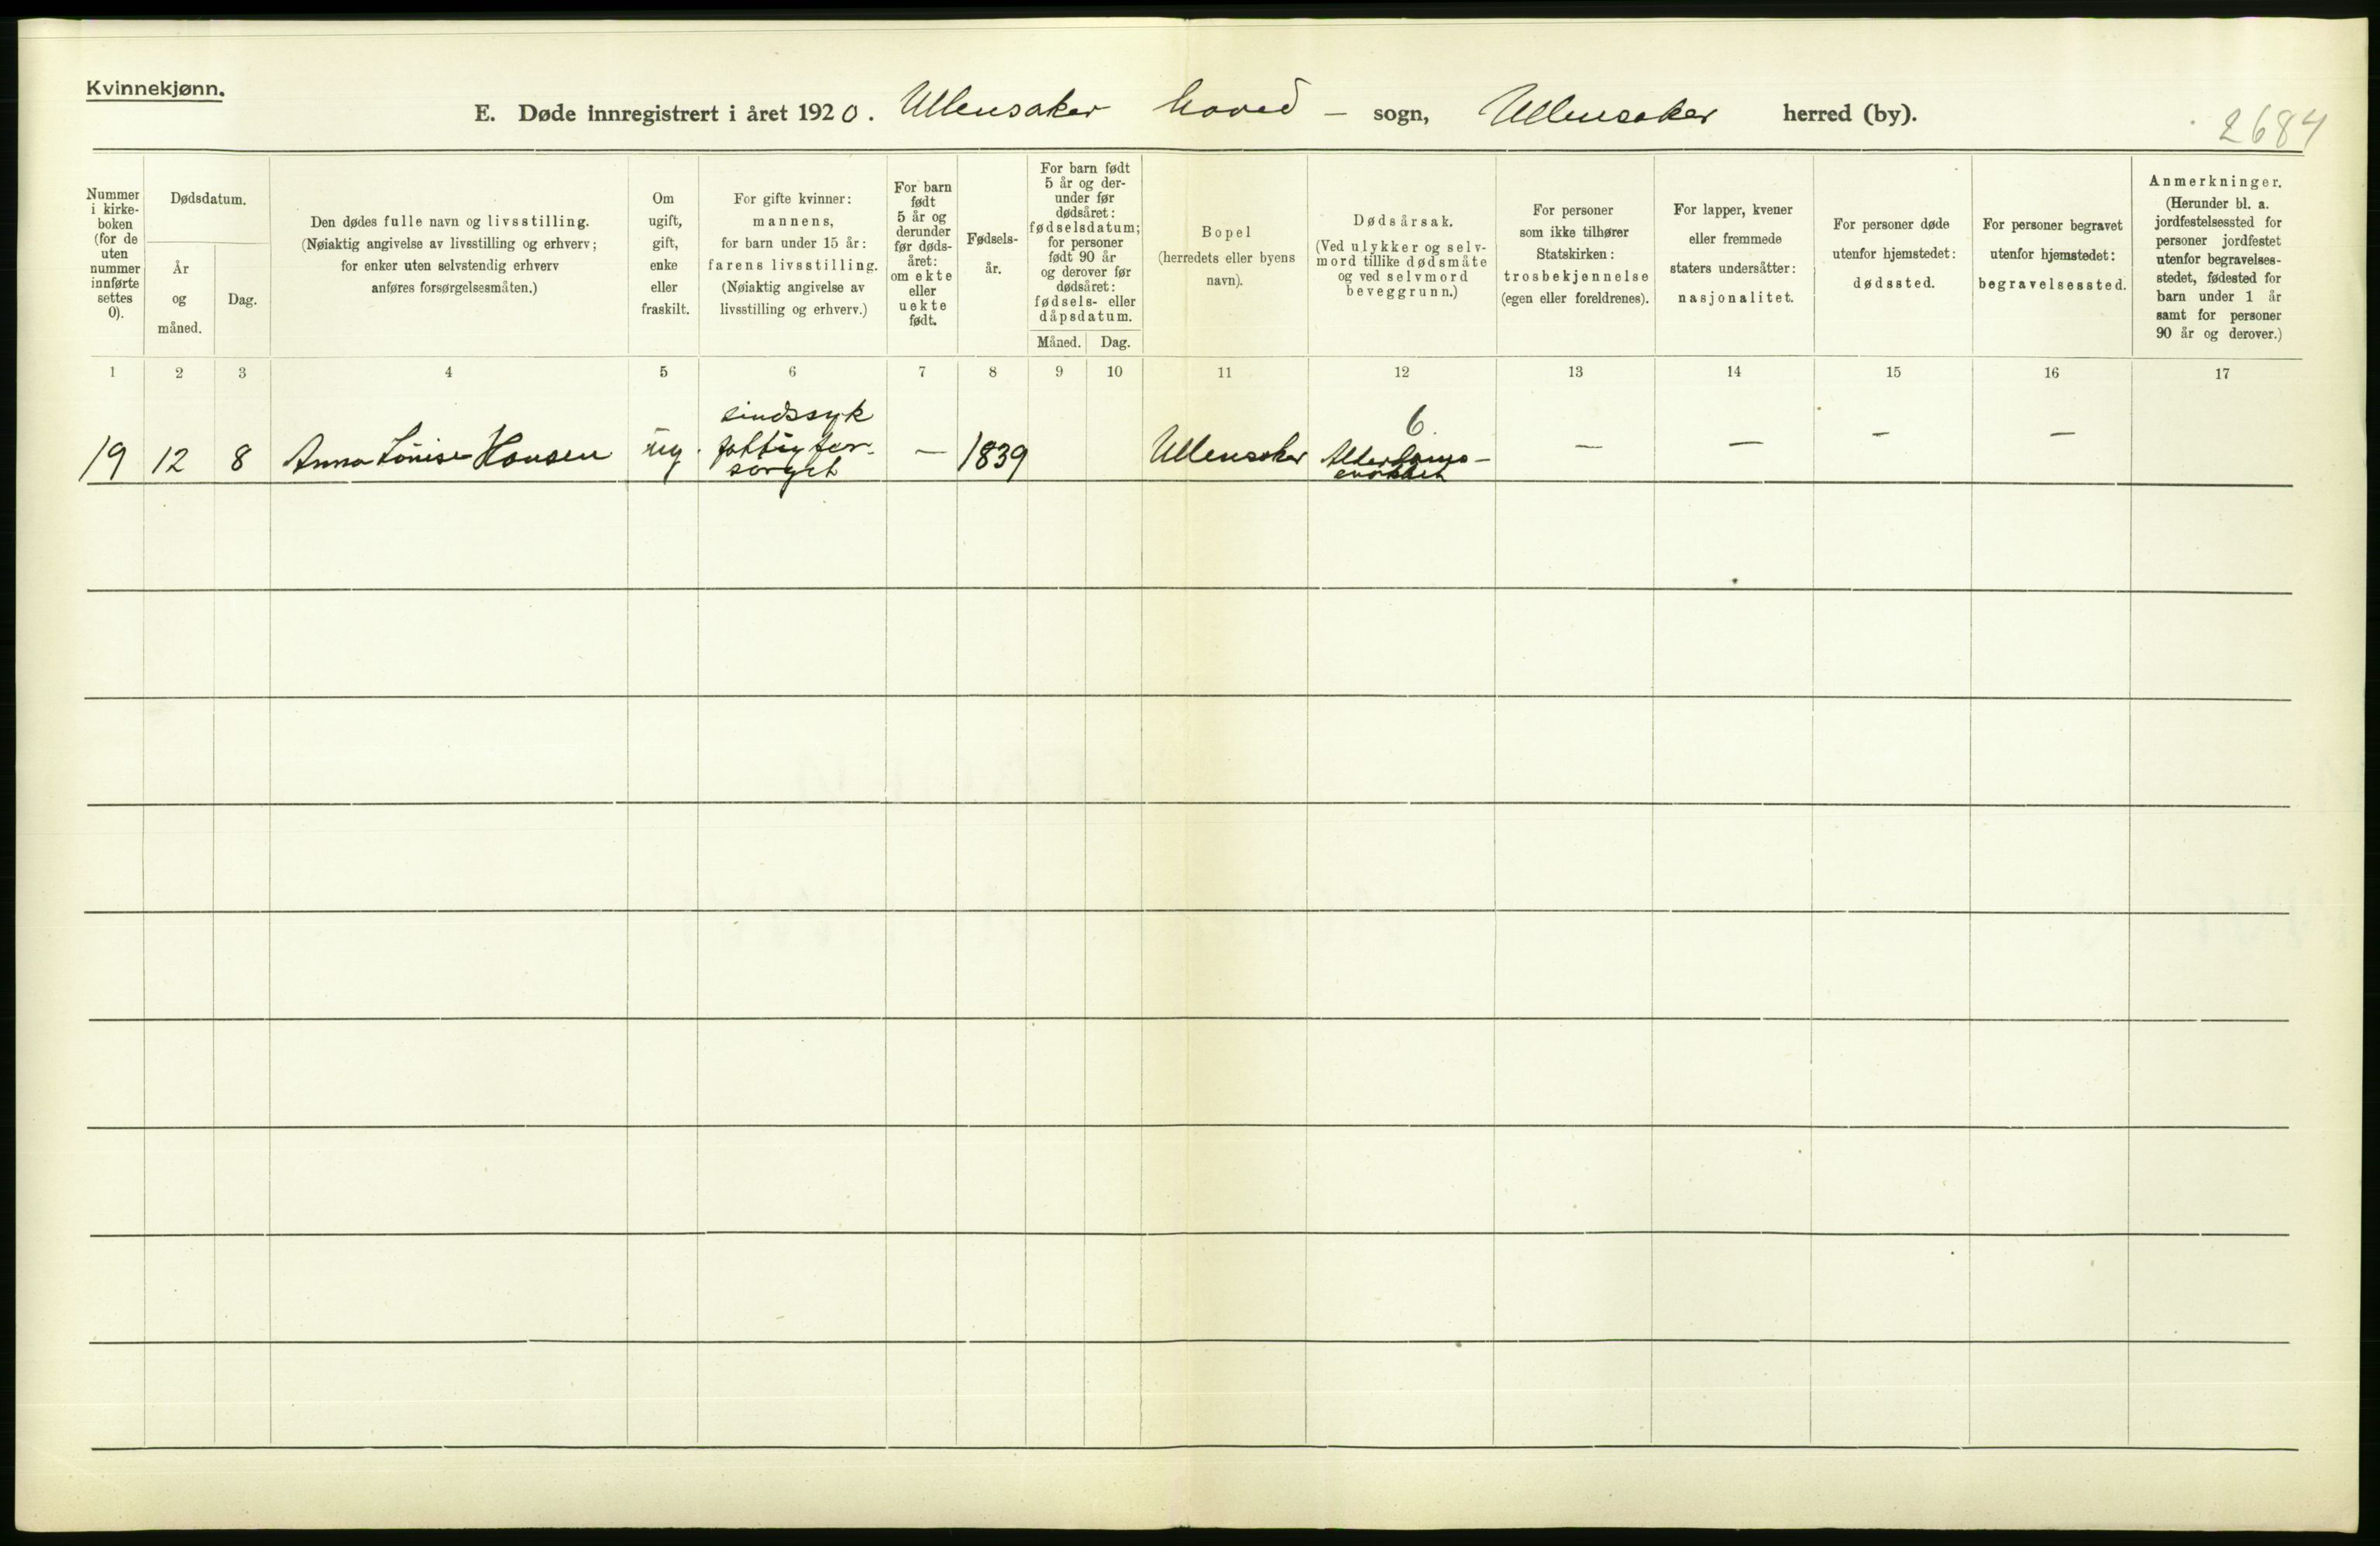 Kvinnekjønn.
E. Døde innregistrert i året 1920. Ullensaker hoved – sogn, Ullensaker herred (by).
2684
Nummer
i kirke-
boken
(for de
uten
nummer
innførte
settes
0).
Dødsdatum.
År
og
måned.
Dag.
Den dødes fulle navn og livsstilling.
(Nøiaktig angivelse av livsstilling og erhverv;
for enker uten selvstendig erhverv
anføres forsørgelsesmåten.)
Om
ugift,
gift,
enke
eller
fraskilt.
For gifte kvinner:
mannens,
for barn under 15 år:
farens livsstilling.
(Nøiaktig angivelse av
livsstilling og erhverv.)
For barn
født
5 år og
derunder
før døds-
året:
om ekte
eller
uekte
født.
Fødsels-
år.
For barn født
5 år og der-
under før
dødsåret:
fødselsdatum;
for personer
født 90 år
og derover før
dødsåret:
fødsels- eller
dåpsdatum.
Måned. Dag.
Bopel
(herredets eller byens
navn).
Dødsårsak.
(Ved ulykker og selv-
mord tillike dødsmåte
og ved selvmord
beveggrunn.)
For personer
som ikke tilhører
Statskirken:
trosbekjennelse
(egen eller foreldrenes).
For lapper, kvener
eller fremmede
staters undersåtter:
nasjonalitet.
For personer døde
utenfor hjemstedet:
dødssted.
For personer begravet
utenfor hjemstedet:
begravelsessted.
Anmerkninger.
(Herunder bl. a.
jordfestelsessted for
personer jordfestet
utenfor begravelses-
stedet, fødested for
barn under 1 år
samt for personer
90 år og derover.)
1 2 3 4 5 6 7 8 9 10 11 12 13 14 15 16 17
19 12 8 Anna Louise Hansen ug.
sindssyk
fattigfor-
sørget
— 1839 Ullensaker
6.
Alderdoms-
svakhet
— — — —